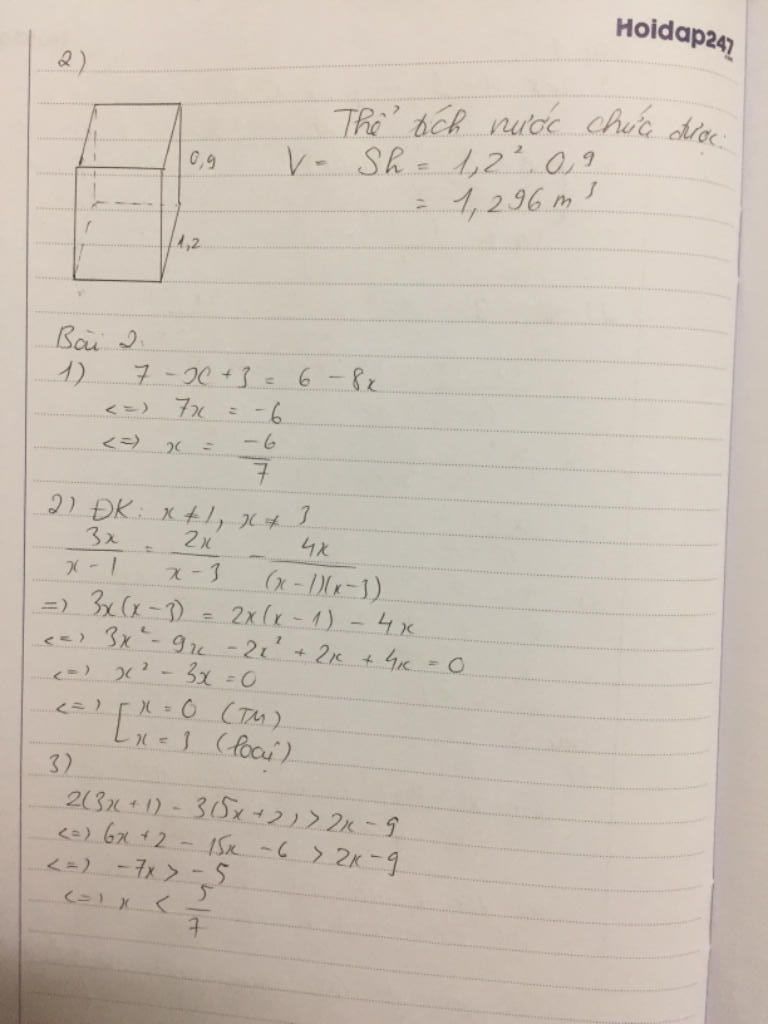 Hoidap247
.com
2)
Thể tích nước chứa được:
0,9
V = Sh = 1,2². 0,9
= 1,296 m³
1,2
Bài 2:
1) 7 - x + 3 = 6 - 8x
<=> 7x = -6
<=> x = -6/7
2) ĐK: x ≠ 1, x ≠ 3
3x/(x - 1) = 2x/(x - 3) - 4x/((x-1)(x-3))
=> 3x(x - 3) = 2x(x - 1) - 4x
<=> 3x² - 9x - 2x² + 2x + 4x = 0
<=> x² - 3x = 0
<=> [ x = 0 (TM)
x = 3 (loại)
3)
2(3x + 1) - 3(5x + 2) > 2x - 9
<=> 6x + 2 - 15x - 6 > 2x - 9
<=> -7x > -5
<=> x < 5/7